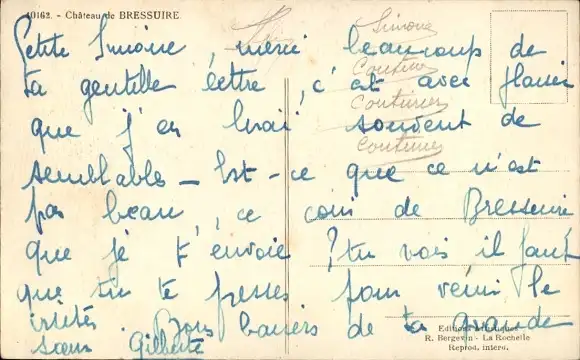 10162. - Château de BRESSUIRE
Simone
Couturier
Couturier
Couturier
Petite Simone, merci beaucoup de
ta gentille lettre, c'est avec plaisir
que j'en lirai souvent de
semblables - Est-ce que ce n'est
pas beau, ce coin de Bressuire
que je t'envoie ? tu vois il faut
que tu te presses pour venir le
Bons baisers de ta grande
sœur Gilberte
R. Bergevin - La Rochelle
Reprod. interd.